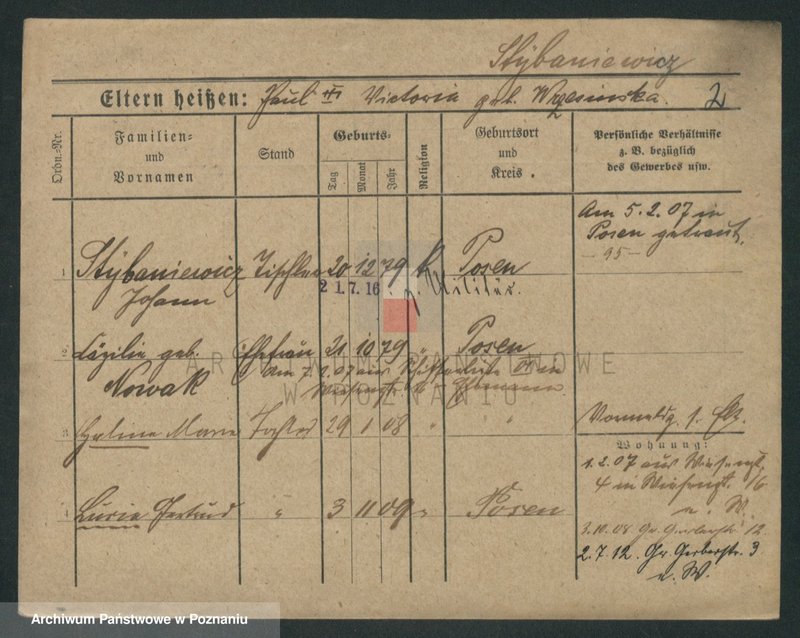 Stybaniewicz
Eltern heißen: Paul u. Victoria geb. Wrzesinska. 2
Ordn.-Nr.
Familien-
und
Vornamen
Stand
Geburts-
Tag
Monat
Jahr
Religion
Geburtsort
und
Kreis.
Persönliche Verhältnisse
z. B. bezüglich
des Gewerbes usw.
Am 5.2.07 in
Posen getraut.
- 95 -
1 Stybaniewicz Tischler 20 12 79 k Posen
Johann
21.7.16 z. Militär.
2 Cäzilie geb. Ehefrau 21 10 79 " Posen
Nowak
Am 7.2.07 aus
3 Halina Marie Tochter 29 1 08 " "
Wohnung:
1.2.07 aus Wiesengt.
4 in Wiesengt. 16
u. W.
4 Lucia Gertrud " 3 11 09 " Posen
3.10.08 Gr. Gerberstr. 12
2.7.12. Gr. Gerberstr. 3
u. W.
ARCHIWUM PAŃSTWOWE
W POZNANIU
Archiwum Państwowe w Poznaniu